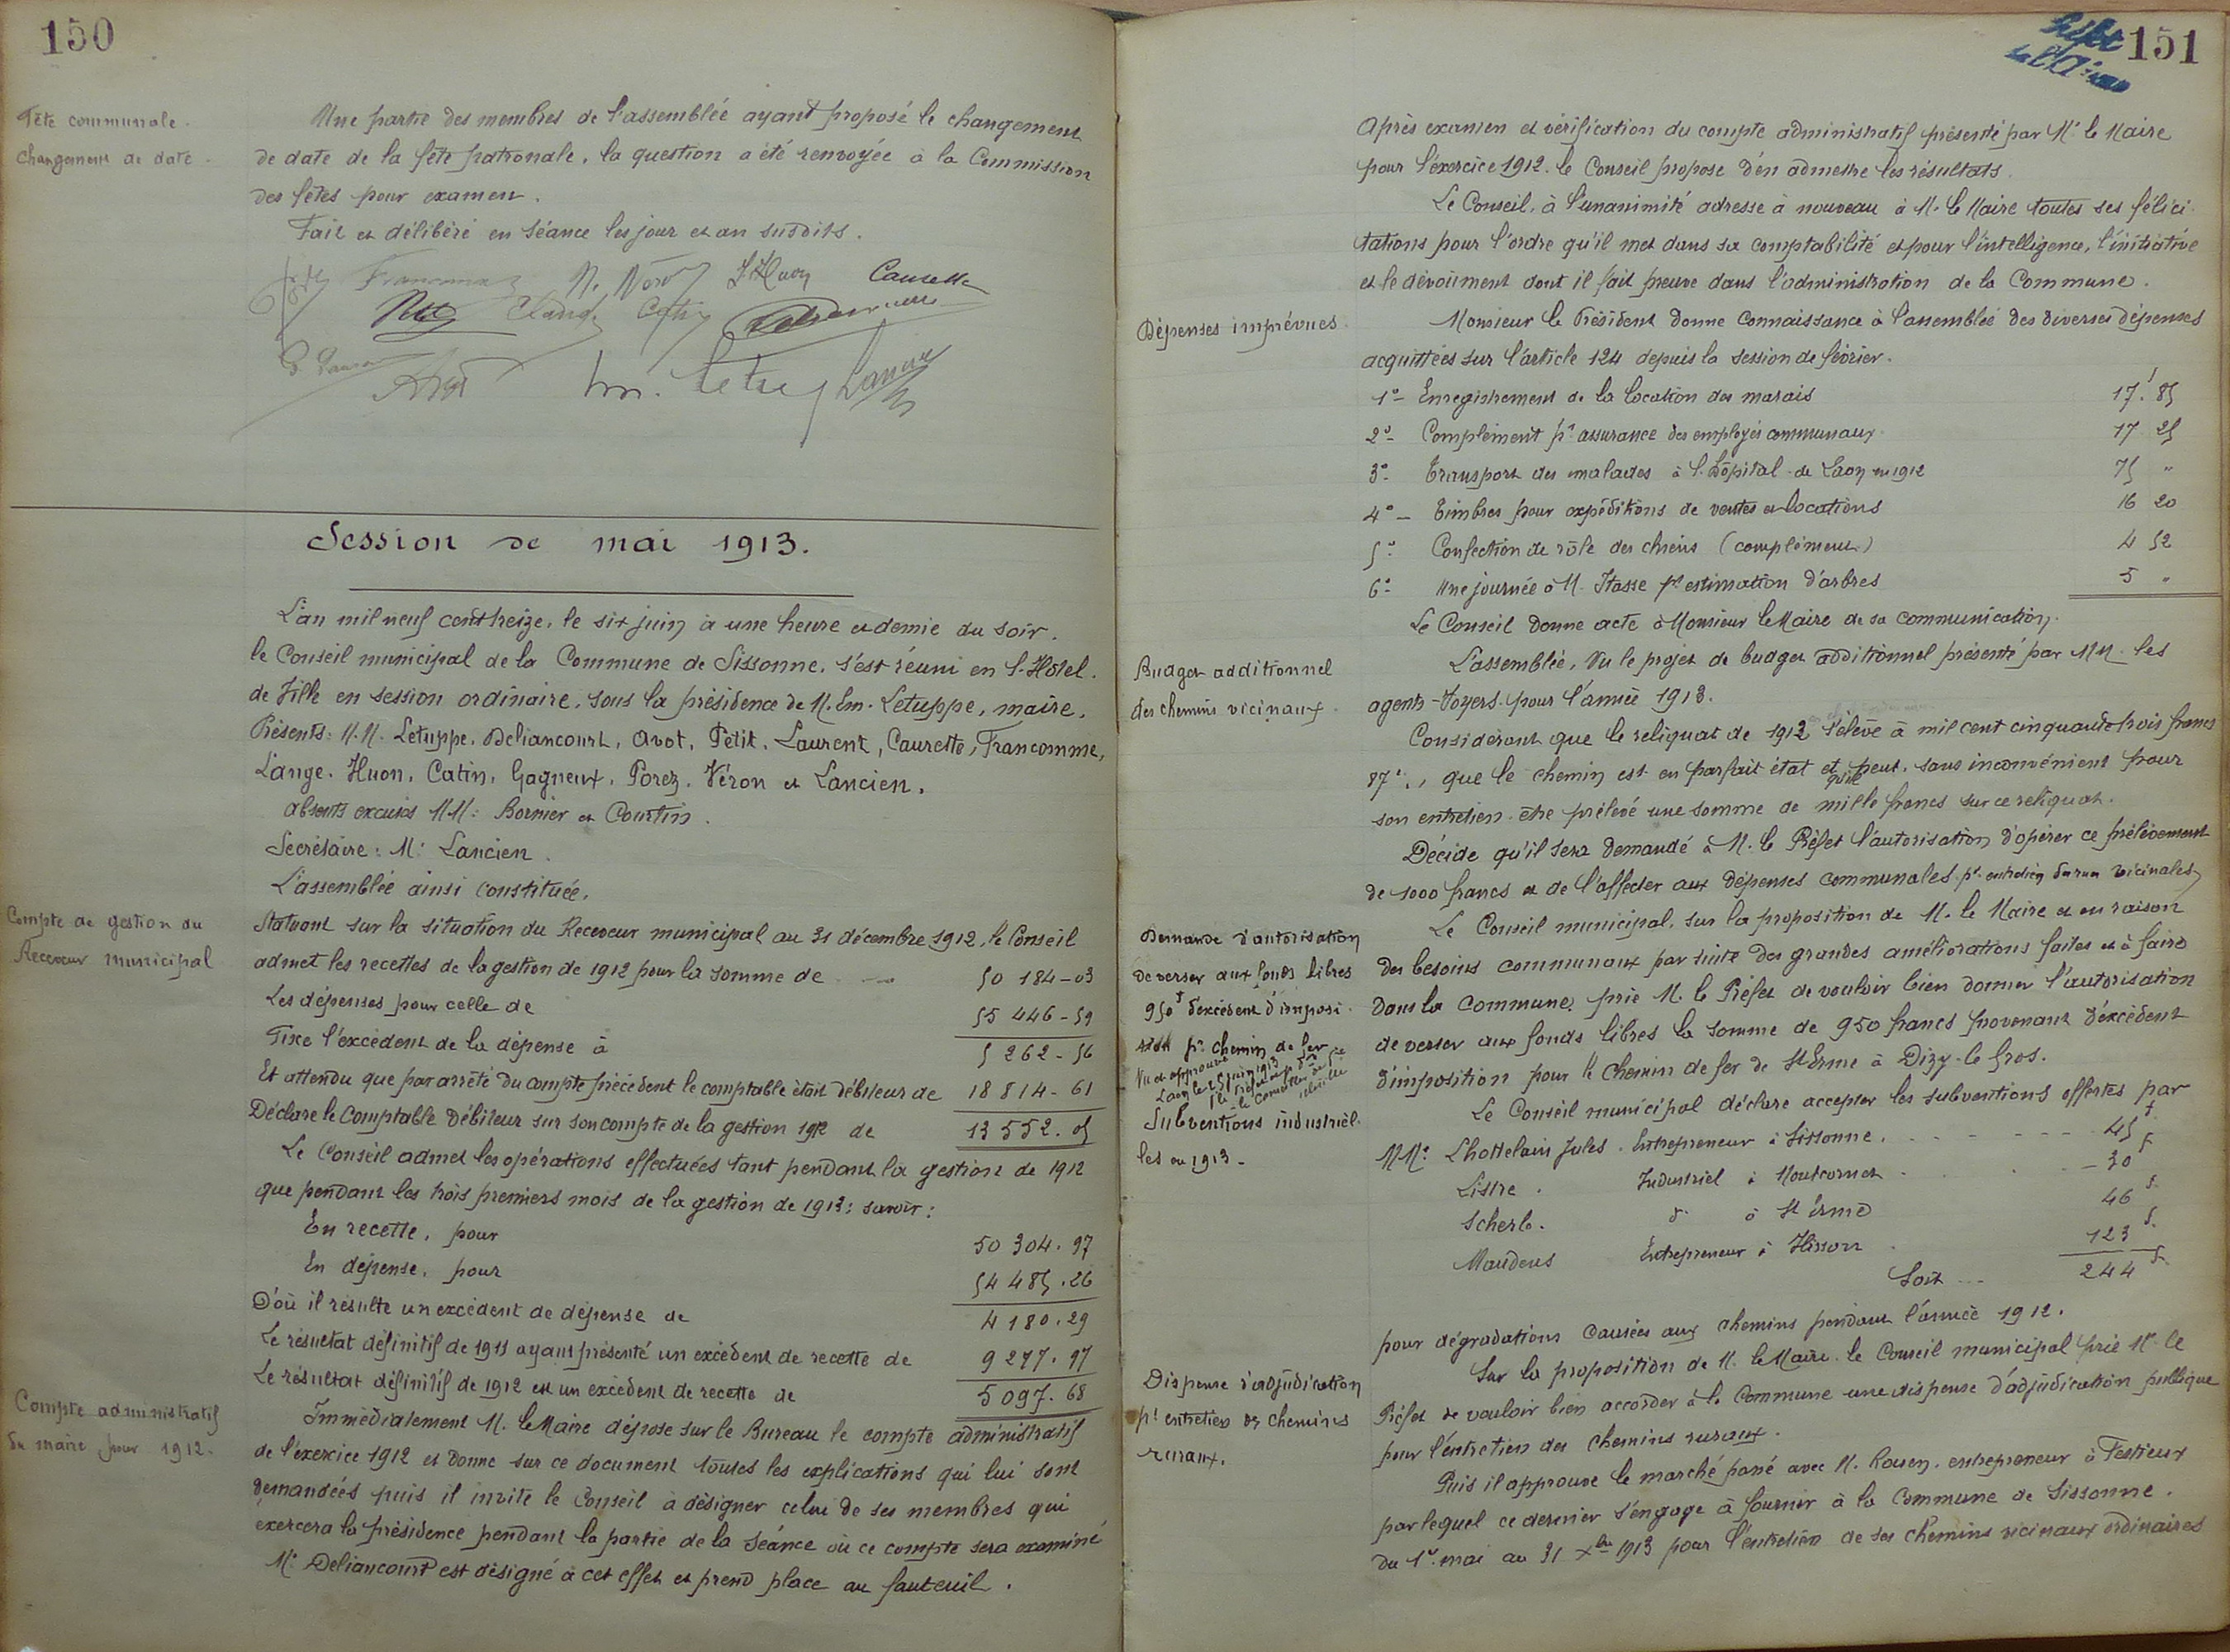 150
Fête communale.
Changement de date.
Une partie des membres de l'assemblée ayant proposé le changement
de date de la fête patronale, la question a été renvoyée à la Commission
des fêtes pour examen.
Fait et délibéré en séance les jour et an susdits.
Francomme N. Véron J. Huon Caurette
Petit Lange Catin Deliancourt
Avot Em. Letuppe Lancien
Session de mai 1913.
L'an mil neuf cent treize, le six juin à une heure et demie du soir.
le Conseil municipal de la Commune de Sissonne, s'est réuni en l'Hôtel.
de Ville en session ordinaire, sous la présidence de M. Em. Letuppe, maire.
Présents: M.M. Letuppe, Deliancourt, Avot, Petit, Laurent, Caurette, Francomme,
Lange, Huon, Catin, Gagneux, Porez, Véron et Lancien.
Absents excusés MM: Bornier et Courtin.
Secrétaire: M. Lancien.
L'assemblée ainsi constituée.
Compte de gestion du
Receveur municipal
Statuant sur la situation du Receveur municipal au 31 décembre 1912, le Conseil
admet les recettes de la gestion de 1912 pour la somme de 50 184-03
Les dépenses pour celle de 55 446-59
Fixe l'excédent de la dépense à 5 262-56
Et attendu que par arrêté du compte précédent le comptable était débiteur de 18 814-61
Déclare le Comptable Débiteur sur son compte de la gestion 1912 de 13 552.05
Le Conseil admet les opérations effectuées tant pendant la gestion de 1912
que pendant les trois premiers mois de la gestion de 1913: savoir:
En recette, pour 50 304.97
En dépense, pour 54 485.26
D'où il résulte un excédent de dépense de 4 180.29
Le résultat définitif de 1911 ayant présenté un excédent de recette de 9 277.97
Le résultat définitif de 1912 est un excédent de recette de 5 097.68
Compte administratif
du maire pour 1912.
Immédiatement M. le Maire dépose sur le Bureau le compte administratif
de l'exercice 1912 et donne sur ce document toutes les explications qui lui sont
demandées puis il invite le Conseil à désigner celui de ses membres qui
exercera la présidence pendant la partie de la séance où ce compte sera examiné
Mr Deliancourt est désigné à cet effet et prend place au fauteuil.
151
Après examen et vérification du compte administratif présenté par Mr le Maire
pour l'exercice 1912. le Conseil propose d'en admettre les résultats.
Le Conseil, à l'unanimité adresse à nouveau à M. le Maire toutes ses félici
tations pour l'ordre qu'il met dans sa comptabilité et pour l'intelligence, l'initiative
et le dévoûment dont il fait preuve dans l'administration de la Commune.
Dépenses imprévues.
Monsieur le Président donne connaissance à l'assemblée des diverses dépenses
acquittées sur l'article 124 depuis la session de février.
1º- Enregistrement de la location des marais 17f.85
2º- Complément pr assurance des employés communaux 17 25
3º- Transport des malades à l'hôpital de Laon en 1912 75 "
4º- Timbres pour expéditions de ventes et locations 16 20
5º- Confection de rôle des chiens (complément) 4 52
6º- Une journée à M. Itasse pr estimation d'arbres 5 "
Le Conseil donne acte à Monsieur le Maire de sa communication.
Budget additionnel
des chemins vicinaux
L'assemblée, Vu le projet de budget additionnel présenté par MM. les
agents-Voyers pour l'année 1913.
Considérant que le reliquat de 1912 s'élève à mil cent cinquante trois francs
87c., que le chemin est en parfait état et qu'il peut, sans inconvénient pour
son entretien être prélevé une somme de mille francs sur ce reliquat.
Décide qu'il sera demandé à M. le Préfet l'autorisation d'opérer ce prélèvement
de 1000 francs et de l'affecter aux dépenses communales pr entretien des rues vicinales
Demande d'autorisation
de verser aux fonds libres
950f d'excédent d'imposi-
tion pr chemin de fer
Vu et approuvé
Laon le 25 juin 1913
Le Conseil municipal, sur la proposition de M. le Maire et en raison
des besoins communaux par suite des grandes améliorations faites et à faire
dans la Commune, prie M. le Préfet de vouloir bien donner l'autorisation
de verser aux fonds libres la somme de 950 francs provenant d'excédent
d'imposition pour le chemin de fer de St Erme à Dizy-le Gros.
Subventions industriel-
les en 1913-
Le Conseil municipal déclare accepter les subventions offertes par
MM. Lhottelain Jules. Entrepreneur à Sissonne. 45f
Listre. Industriel à Montcornet 30f
Scherb. d à St Erme 46f
Maudens Entrepreneur à Hirson 123f
Soit --- 244f
pour dégradations causées aux chemins pendant l'année 1912.
Dispense d'adjudication
pr entretien des chemins
ruraux.
Sur la proposition de M. le Maire. le Conseil municipal prie Mr le
Préfet de vouloir bien accorder à la Commune une dispense d'adjudication publique
pour l'entretien des chemins ruraux.
Puis il approuve le marché passé avec M. Rouen, entrepreneur à Festieux
par lequel ce dernier s'engage à fournir à la Commune de Sissonne.
du 1er mai au 31 Xbre 1913 pour l'entretien de ses chemins vicinaux ordinaires